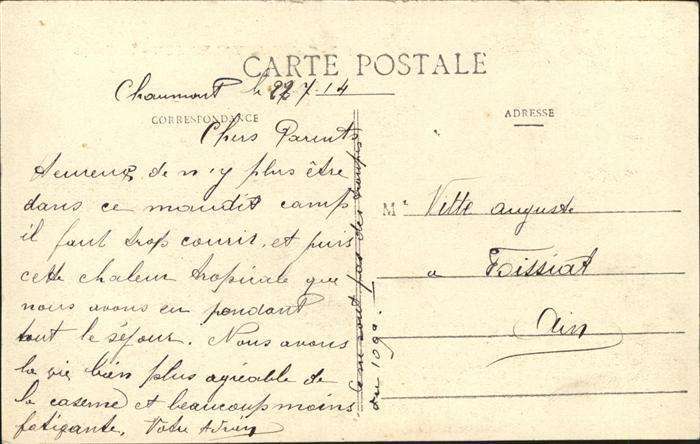 CARTE POSTALE
Chaumont le 27-7-14
CORRESPONDANCE
ADRESSE
Chers Parents
Heureux de n'y plus être
dans ce maudit camp
il faut trop courir, et puis
cette chaleur tropicale que
nous avons eu pendant
tout le séjour. Nous avons
la vie bien plus agréable de
la caserne et beaucoup moins
fatigante, Votre Adrien
ce ne sont pas des troupes
du 109e.
Mr Vette auguste
a Foissiat
Ain